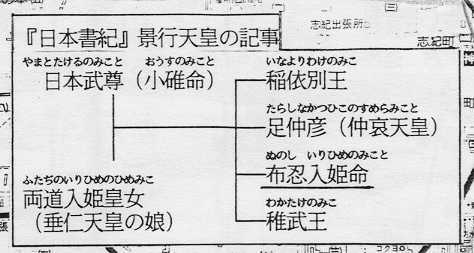 『日本書紀』景行天皇の記事
志紀出張所
志紀町
やまとたけるのみこと おうすのみこと
日本武尊（小碓命）
ふたぢのいりひめのひめみこ
両道入姫皇女
（垂仁天皇の娘）
いなよりわけのみこ
稲依別王
たらしなかつひこのすめらみこと
足仲彦（仲哀天皇）
ぬのし いりひめのみこと
布忍入姫命
わかたけのみこ
稚武王